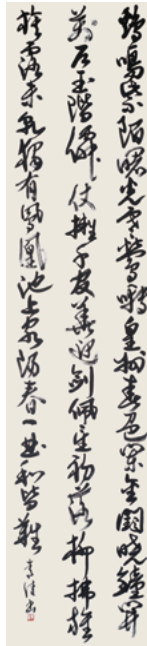 鷄鳴紫陌曙光寒鶯囀皇州春色闌金闕曉鐘開
萬户玉階僊仗擁千官花迎劍佩星初落柳拂旌
旗露未乾獨有鳳凰池上客陽春一曲和皆難